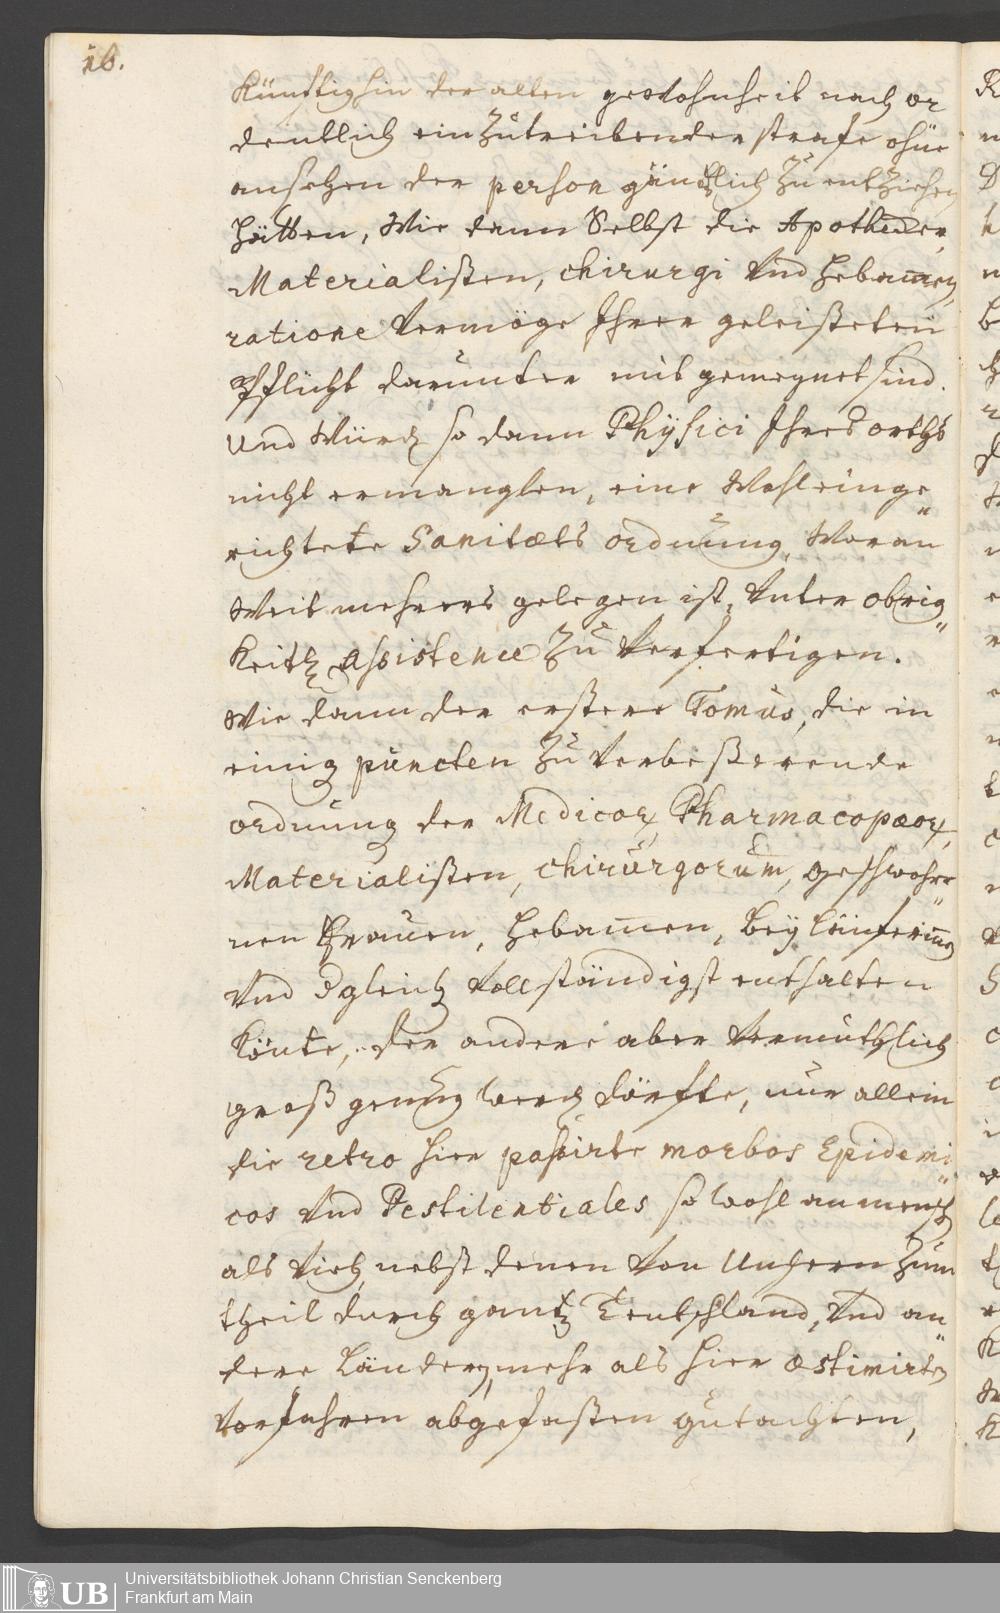 16.
Künfftighin der alten gewohnheit nach or
dentlich einzutreibender strafe ohne
ansehen der person gäntzlich zu entziehen
hätten, Wie dann Selbst die Apothecker,
Materialisten, chirurgi Vnd Hebamen,
ratione Vermöge Ihrer geleisteten
Pflicht darunter mit gemeynet sind.
Und Würde so dann Physici Ihres orths
nicht ermanglen, eine Wohleinge„
richtete Sanitæts ordnung, Woran
Weit mehrers gelegen ist, Vnter obrig„
Keitl. assistence Zu Verfertigen.
Wie dann der erstere Tomus, die in
einig puncten Zu Verbeßerende
ordnung der Medicor, Pharmacopæor,
Materialisten, chirurgorum, geschwohr„
nen Frauen, Hebamen, Beyläuferinen
Vnd dgleich Vollständigst enthalten
Könte, der andere aber Vermuthlich
groß genug werd dörfte, nur allein
die retro hier passirte morbos Epidemi„
cos Vnd Pestilentiales so wohl an mensch
als Vieh, nebst denen Von Unsern Zum
theil durch gantz Teutschland, Vnd an„
dere Länder, mehr als hier æstimirten
Vorfahren abgefasten gutachten,
Universitätsbibliothek Johann Christian Senckenberg
Frankfurt am Main
UB